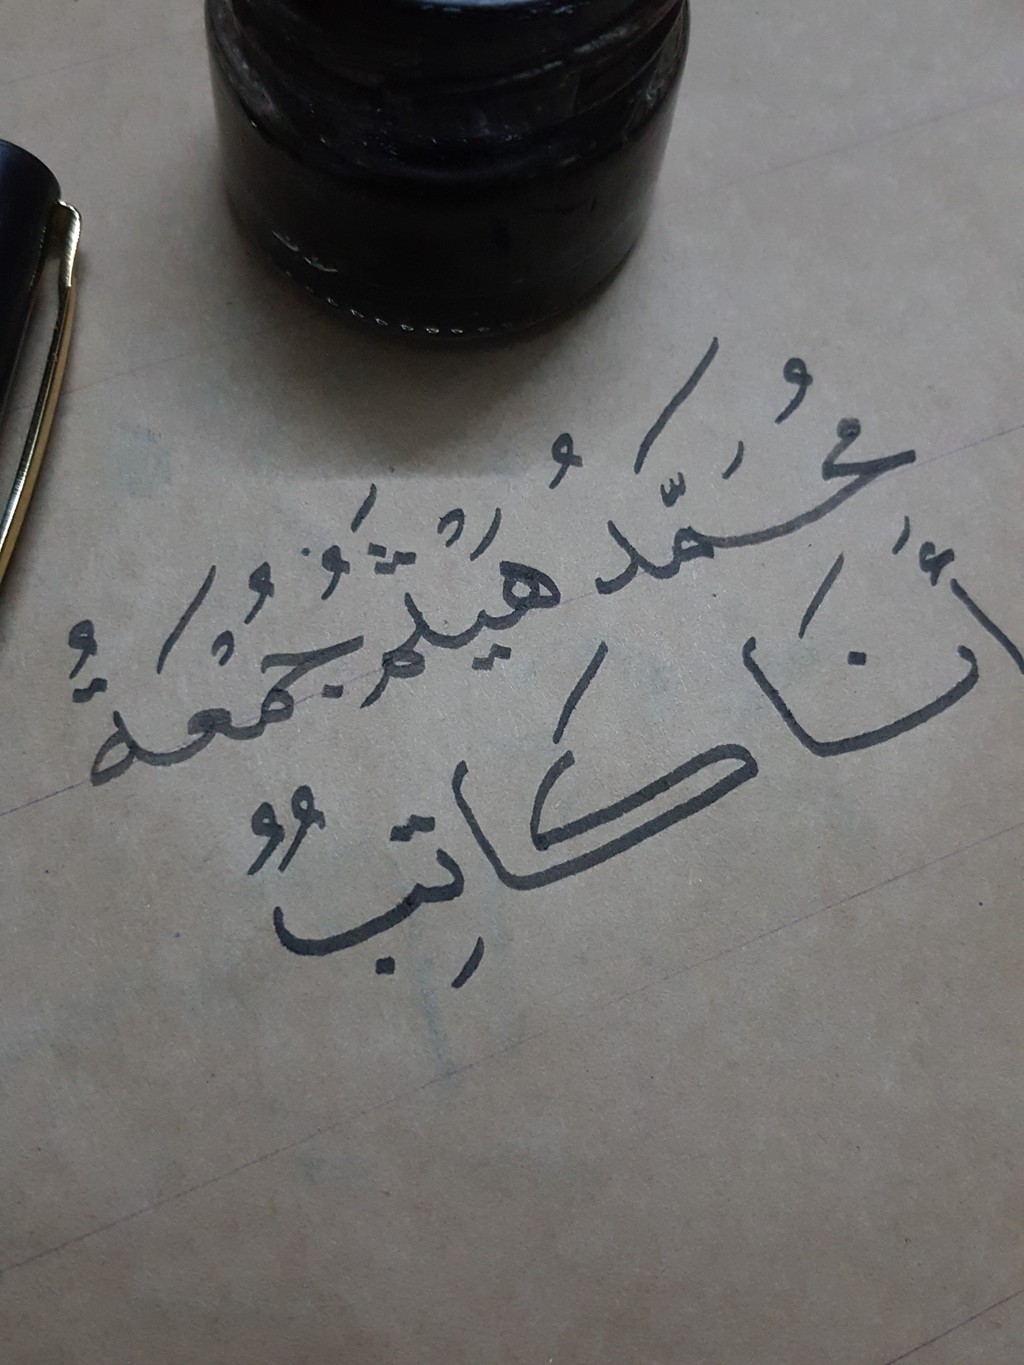 مُحَمَّدُ هَيْلَمُ جُمُعَةُ
أَنَا كَاتِبٌ